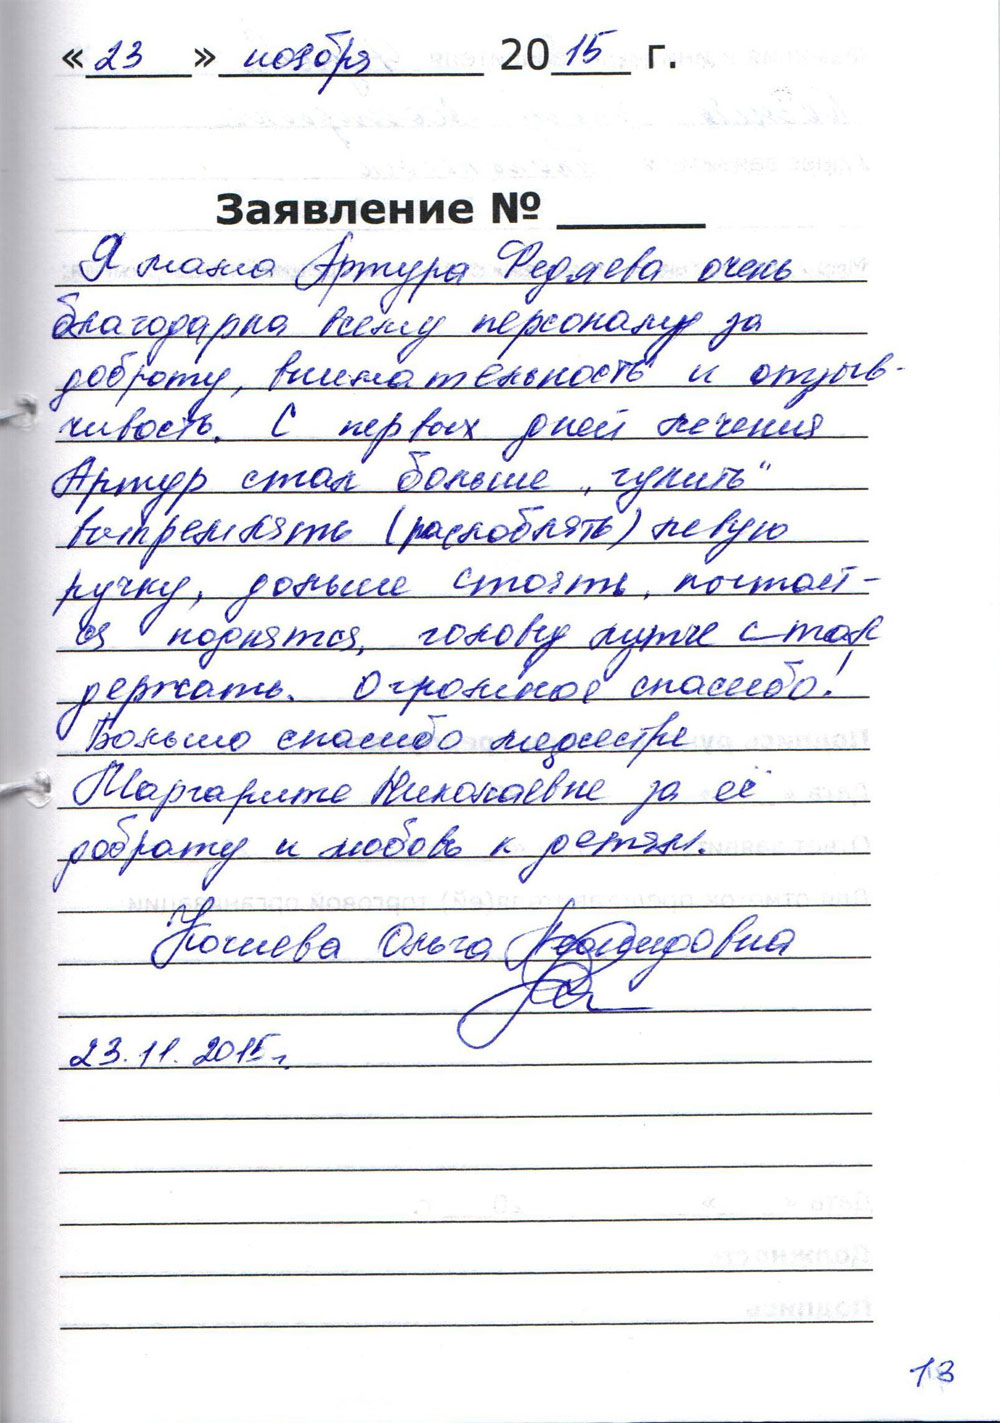 «23» ноября 2015 г.
Заявление № ______
Я мама Артура Федяева очень
благодарна всему персоналу за
доброту, внимательность и отзыв-
чивость. С первых дней лечения
Артур стал больше „гулить"
выпремлять (расслоблять) левую
ручку, дольше стоять, пытает-
ся поднятся, голову лутче стал
держать. Огромное спасибо!
Большо спасибо медсестре
Маргарите Николаевне за её
доброту и любовь к детям.
Ольга
23.11.2015г.
13